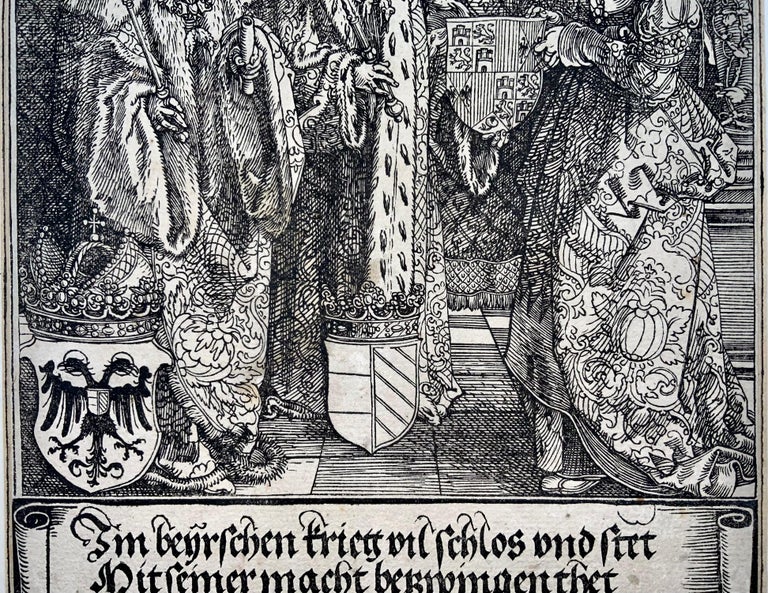 Im beyrschen krieg vil schlos vnd stet
Mit seiner macht betzwingen thet